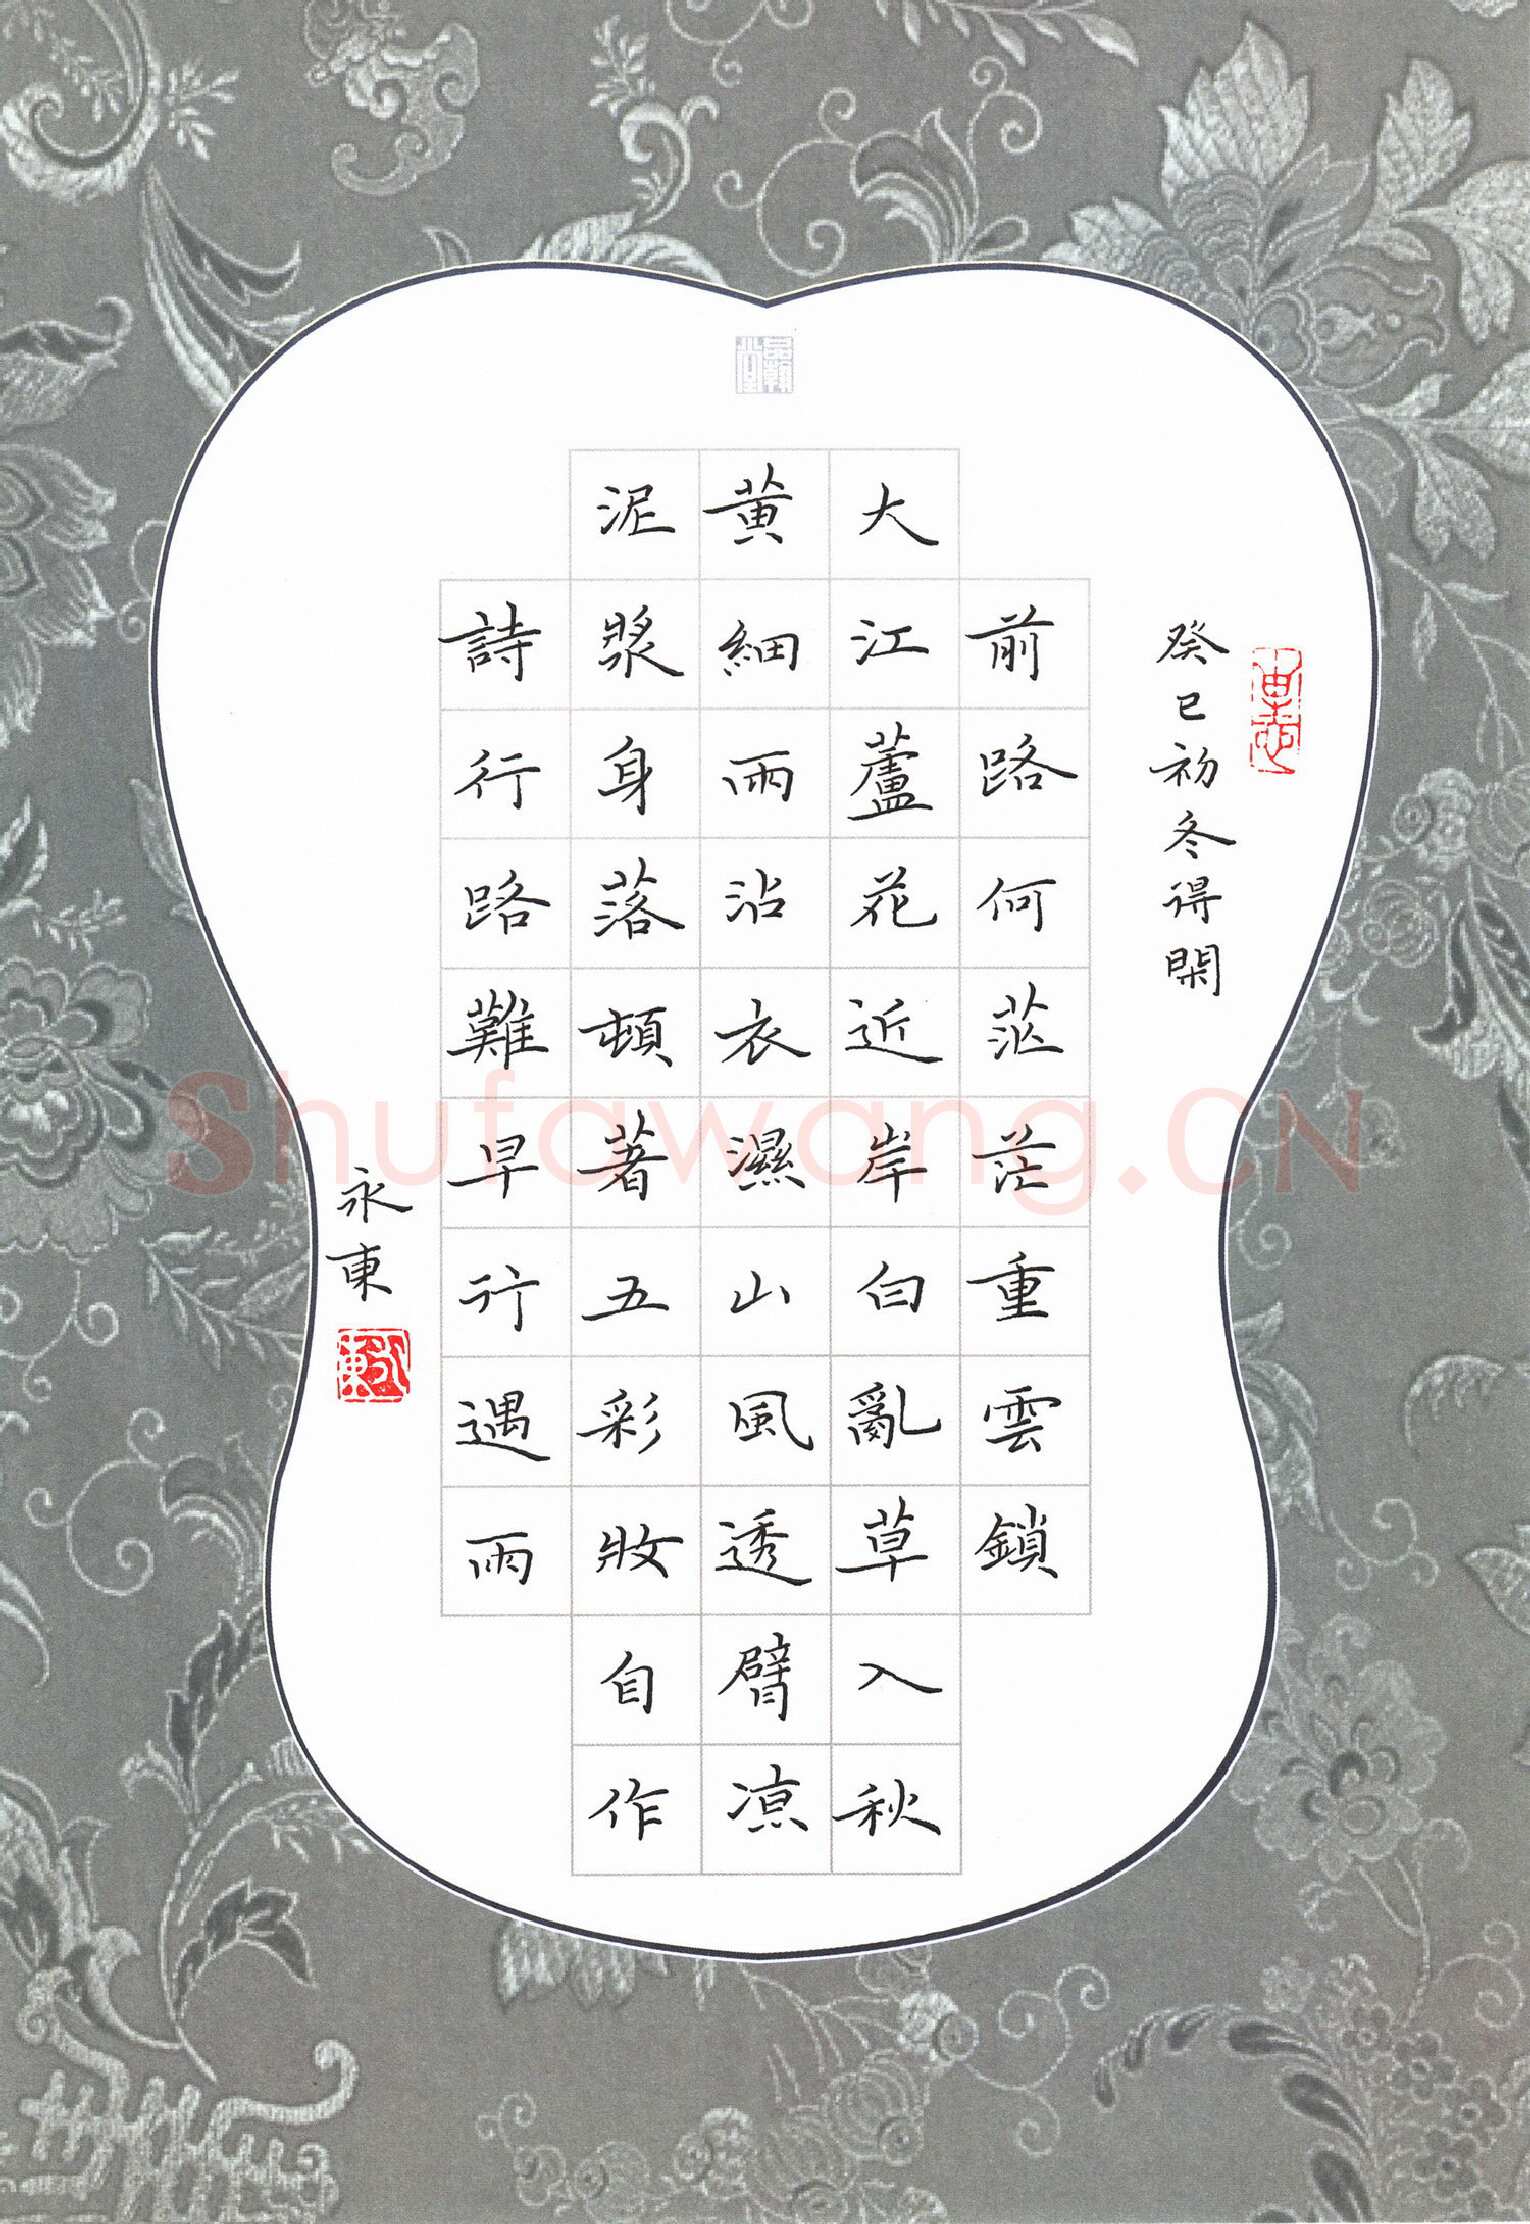 癸巳初冬得閑
前路何茫茫重雲鎖
大江蘆花近岸白亂草入秋
黄細雨沾衣濕山風透臂凉
泥漿身落頓著五彩妝自作
詩行路難早行遇雨
永東
永東
Shufawang.CN